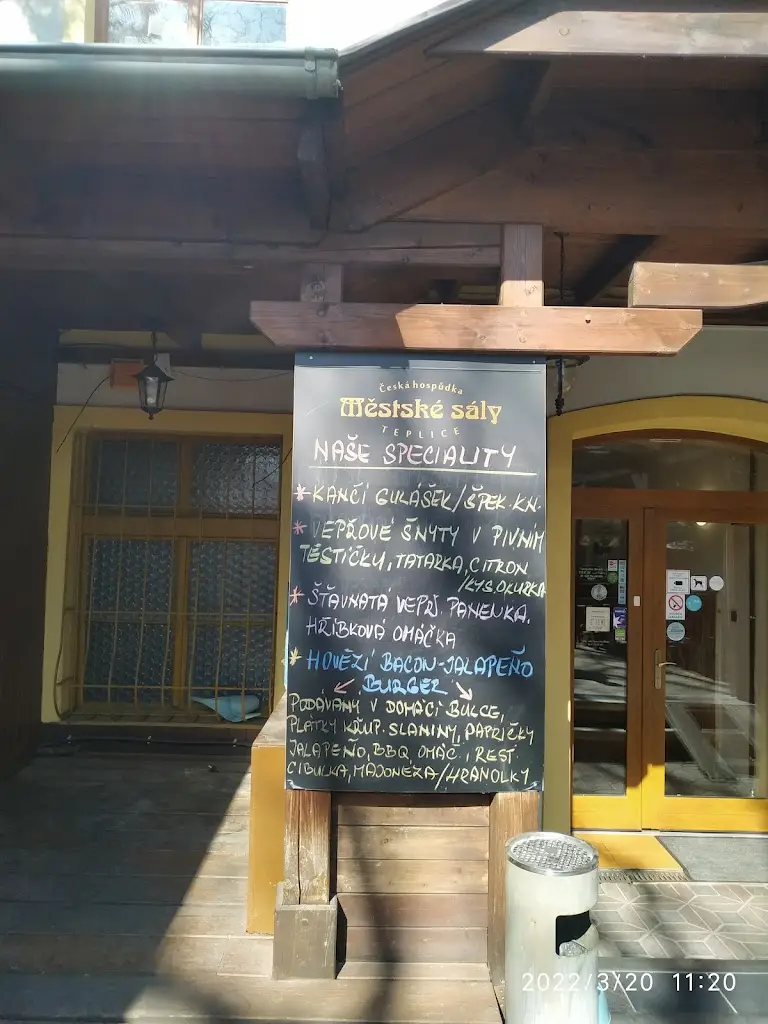 Česká hospůdka
Městské sály
TEPLICE
NAŠE SPECIALITY
* KANČÍ GULÁŠEK/ŠPEK.KN.
* VEPŘOVÉ ŠNYTY V PIVNÍM
TĚSTÍČKU, TATARKA, CITRON
/KYS.OKURKA
* ŠŤAVNATÁ VEPŘ. PANENKA,
HŘÍBKOVÁ OMÁČKA
* HOVĚZÍ BACON-JALAPEÑO
BURGER
PODÁVANÝ V DOMÁCÍ BULCE,
PLÁTKY KŘUP. SLANINY, PAPRIČKY
JALAPEÑO, BBQ OMÁČ., REST.
CIBULKA, MAJONÉZA/HRANOLKY
2022/3/20 11:20